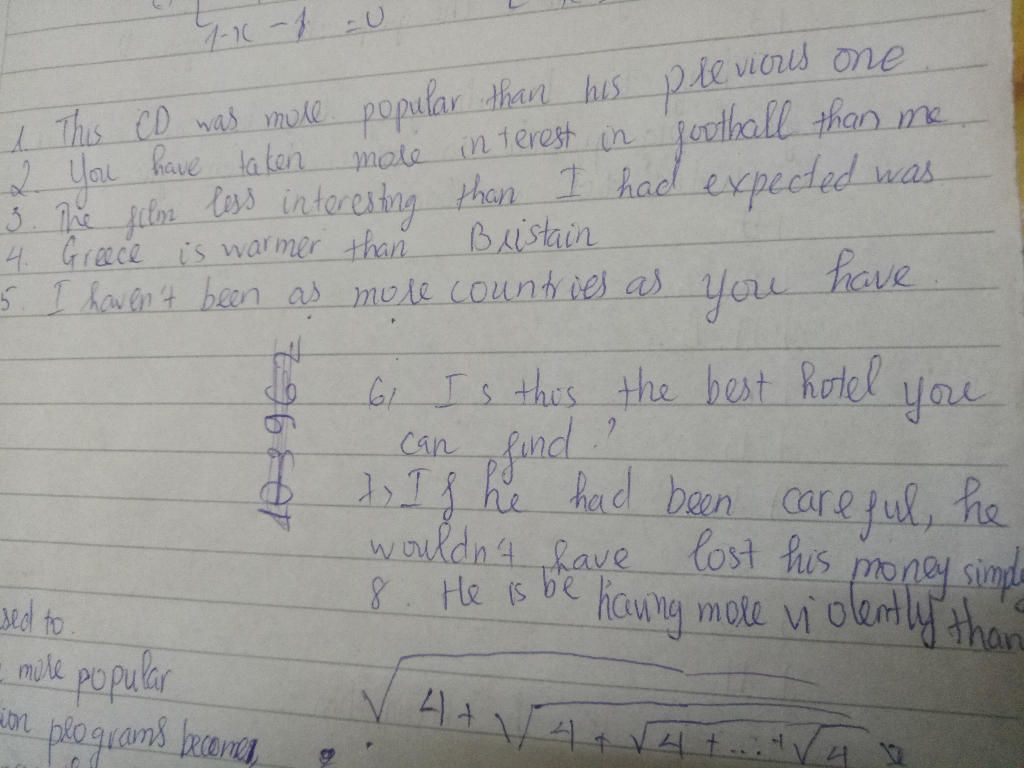 1-x - 1 = 0
1 This CD was more popular than his previous one
2. You have taken more interest in football than me
3. The film less interesting than I had expected was
4. Greece is warmer than Bristain
5. I haven't been as more countries as you have.
6, Is this the best hotel you
can find?
7, If he had been careful, he
wouldn't have lost his money simple
8. He is be having more violently than
sed to.
more popular
ion programs becomes,
√4 + √4 + √4 + ... + √4